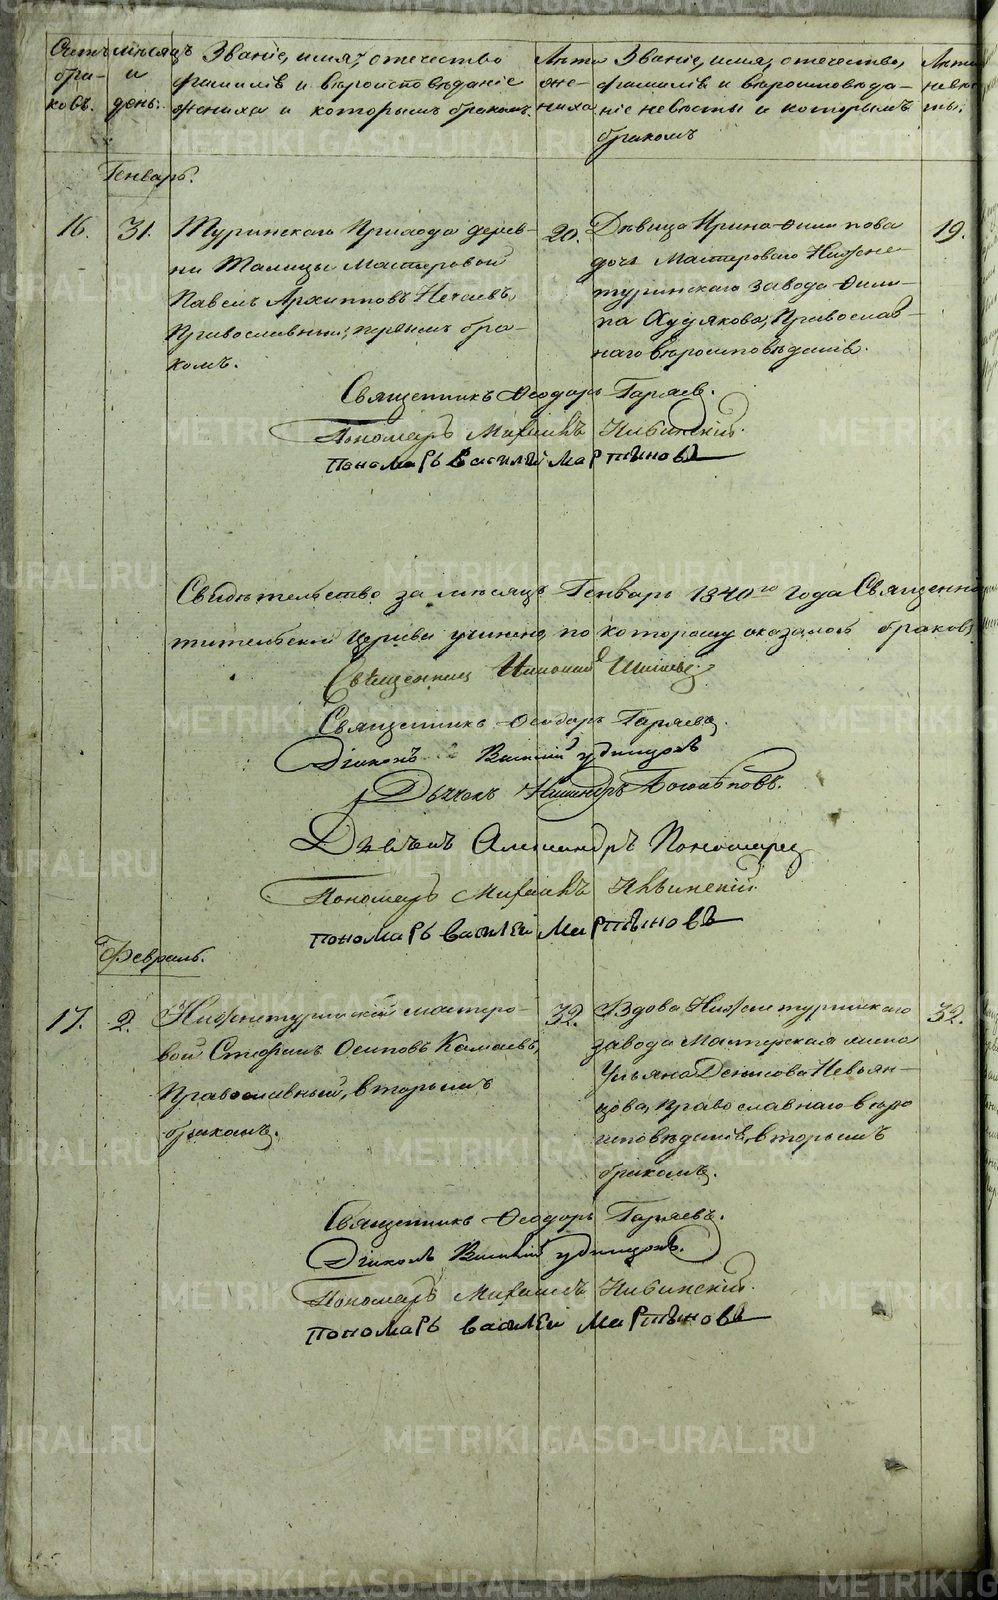 Счетъ бра- ковъ.
мѣсяцъ и день.
Званіе, имя, отечество
фамилія и вѣроисповѣданіе
жениха и которымъ бракомъ.
Лѣта же- ниха
Званіе, имя, отечество,
фамилія и вѣроисповѣда-
ніе невѣсты и которымъ
бракомъ
Лѣта невѣс ты.
Генварь.
16. 31.
Туринскаго Прихода дерев-
ни Талицы Мастеровой
Павелъ Архиповъ Нечаевъ,
Православный, первымъ бра-
комъ.
20.
Дѣвица Ирина Филипова
дочь Мастероваго Нижне
туринскаго завода Фили-
па Худякова, Православ-
наго вѣроисповѣданія.
19.
Священникъ Ѳеодоръ Гаряев.
Пономарь Михаилъ Ивинскій.
Пономарь Василей Мартыновъ
Свидѣтельство за мѣсяцъ Генварь 1840го года Священно
тительской Церкви учинено, по которому оказалось браковъ
Священникъ
Священникъ Ѳеодоръ Гаряевъ.
Діаконъ Василій Удинцовъ
Дьячекъ
Дьячекъ Александръ Пономарев
Пономарь Михаилъ Ивинскій
Пономарь Василей Мартыновъ
Февраль.
17. 2.
Нижнетуринской мастеро-
вой Стефанъ Осиповъ Камаевъ,
Православный, вторымъ
бракомъ.
32.
Вдова Нижнетуринскаго
завода Мастерская жена
Ульяна Денисова Невьян-
цова, православнаго вѣро
исповѣданія, вторымъ
бракомъ.
32.
Священникъ Ѳеодоръ Гаряевъ.
Діаконъ Василій Удинцовъ.
Пономарь Михаилъ Ивинскій.
Пономарь Василей Мартыновъ
METRIKI.GASO-URAL.RU